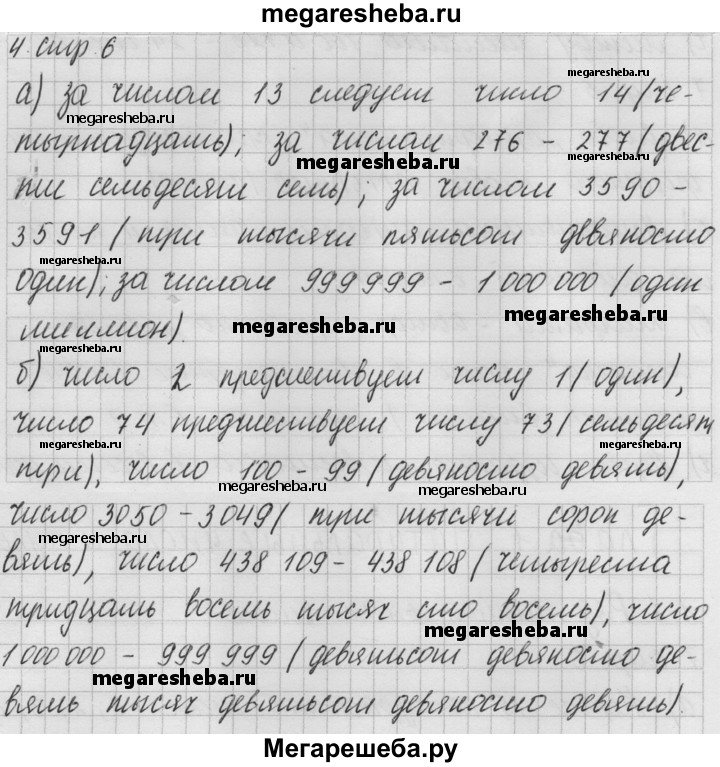 megaresheba.ru
4. стр. 6
megaresheba.ru
а) за числом 13 следует число 14 (че-
megaresheba.ru
тырнадцать); за числом 276 - 277 (двес-
megaresheba.ru megaresheba.ru
ти семьдесят семь); за числом 3590 -
3591 (три тысячи пятьсот девяносто
один); за числом 999 999 - 1 000 000 (один
megaresheba.ru megaresheba.ru
миллион).
megaresheba.ru
б) число 2 предшествует числу 1 (один),
число 74 предшествует числу 73 (семьдесят
megaresheba.ru megaresheba.ru
три), число 100 - 99 (девяносто девять),
megaresheba.ru megaresheba.ru
число 3050 - 3049 (три тысячи сорок де-
megaresheba.ru
вять), число 438 109 - 438 108 (четыреста
тридцать восемь тысяч сто восемь), число
megaresheba.ru
1 000 000 - 999 999 (девятьсот девяносто де-
megaresheba.ru
вять тысяч девятьсот девяносто девять).
Мегарешеба.ру